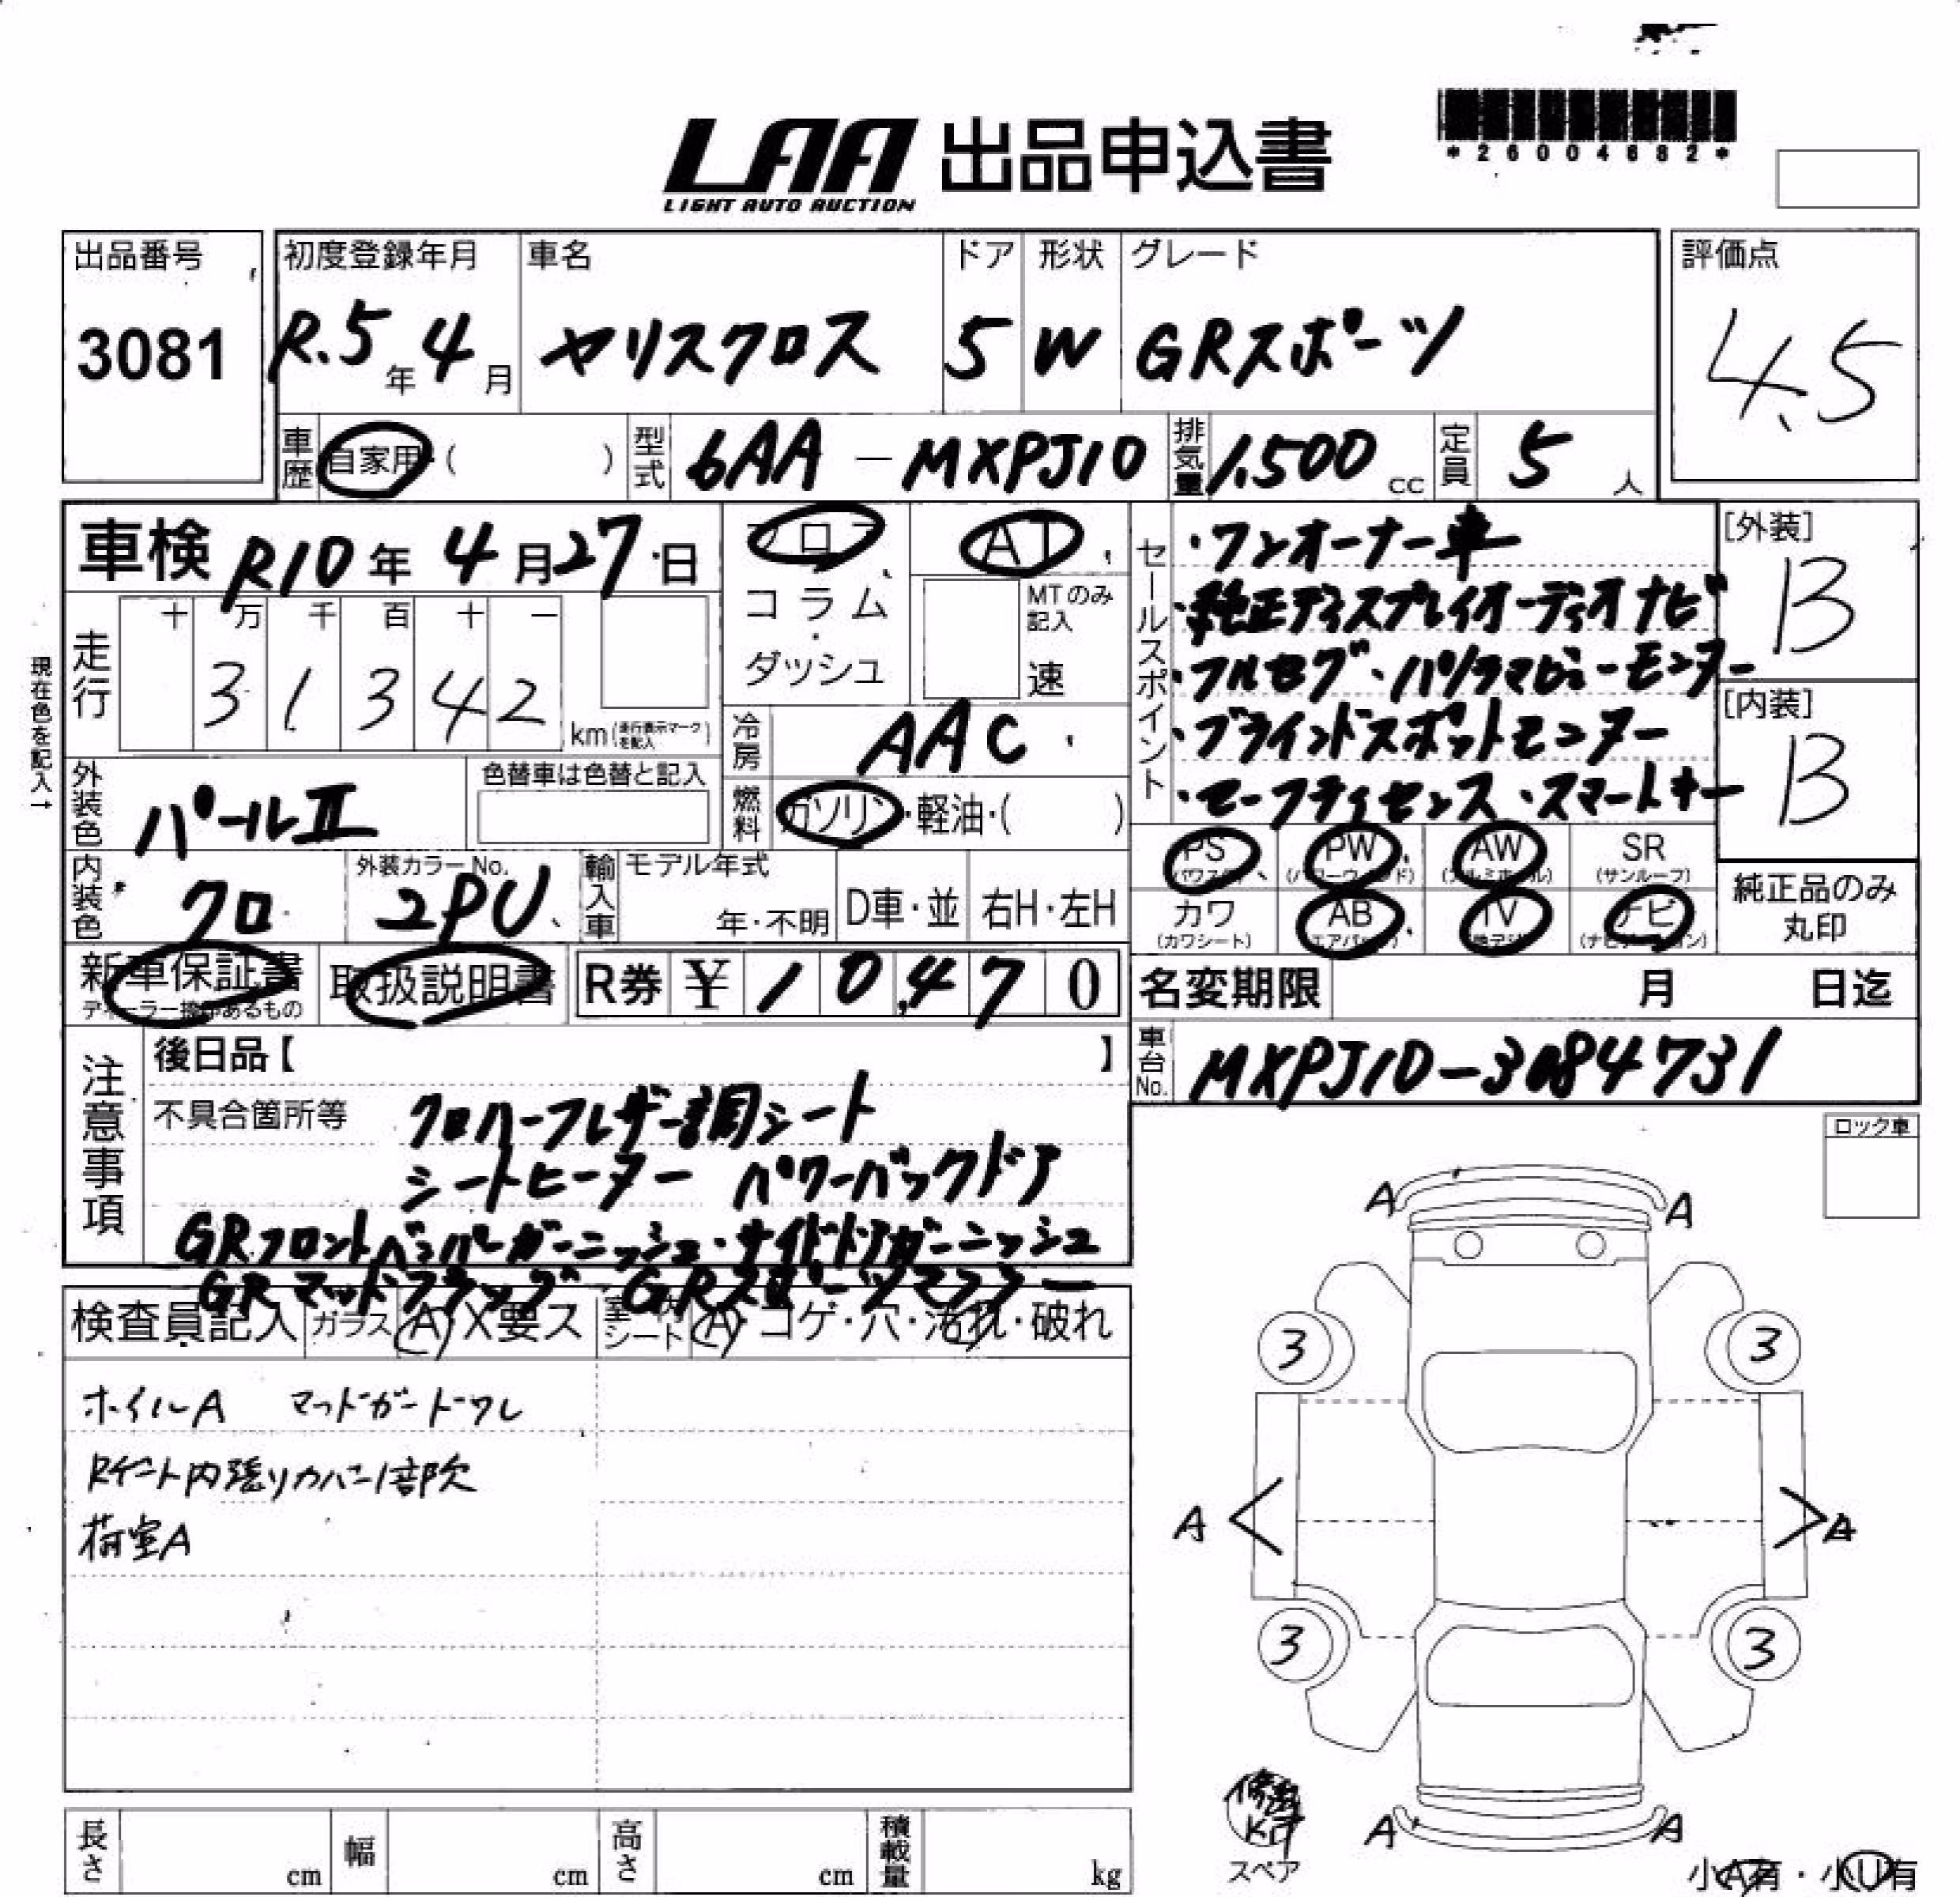 *26004682*
LAA 出品申込書
LIGHT AUTO AUCTION
出品番号 初度登録年月 車名 ドア 形状 グレード 評価点
3081 R.5年4月 ヤリスクロス 5 W GRスポーツ 4.5
車歴 自家用・( ) 型式 6AA-MXPJ10 排気量 1,500cc 定員 5人
車検 R10年4月27日 フロア AT
コラム・ダッシュ MTのみ記入 速
走行 十 万 千 百 十 一
31342 km(走行表示マークを記入)
現在色を記入→
冷房 AAC
外装色 パールⅡ 色替車は色替と記入
燃料 ガソリン・軽油・( )
内装色 クロ 外装カラーNo. 2PU 輸入車 モデル年式 年・不明 D車・並 右H・左H
セールスポイント
・ワンオーナー車
・純正ディスプレイオーディオナビ
・フルセグ・パノラマビューモニター
・ブラインドスポットモニター
・セーフティセンス・スマートキー
[外装] B
[内装] B
PS PW AW SR
(パワステ) (パワーウィンド) (アルミホイール) (サンルーフ)
カワ AB TV ナビ
(カワシート) (エアバッグ) (地デジ) (ナビゲーション)
純正品のみ丸印
新車保証書 取扱説明書 R券 ¥10,470
ディーラー捺印あるもの
名変期限 月 日迄
車台No. MXPJ10-3084731
注意事項
後日品【 】
不具合箇所等 クロハーフレザー調シート
シートヒーター パワーバックドア
GRフロントバンパーガーニッシュ・サイドドアガーニッシュ
GRマッドフラップ GRスポーツマフラー
検査員記入 ガラス A X要ス 室内シート A・コゲ・穴・汚れ・破れ
ホイルA マッドガードワレ
内張りカバー1部欠
荷室A
ロック車
A A
3 3
A A
3 3
A A
修キ
スペア
小A有・小U有
長さ cm 幅 cm 高さ cm 積載量 kg